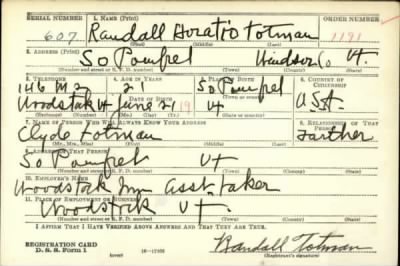 SERIAL NUMBER 1. NAME (Print) ORDER NUMBER
607 Randall Horatio Totman 1191
(First) (Middle) (Last)
2. ADDRESS (Print)
So Pomfret Windsor Co Vt.
(Number and street or R. F. D. number) (Town) (County) (State)
3. TELEPHONE 4. AGE IN YEARS 5. PLACE OF BIRTH 6. COUNTRY OF CITIZENSHIP
146 M2 21 So Pomfret
DATE OF BIRTH
Woodstock Vt June 21 19 Vt USA
(Exchange) (Number) (Mo.) (Day) (Yr.) (State or country)
7. NAME OF PERSON WHO WILL ALWAYS KNOW YOUR ADDRESS 8. RELATIONSHIP OF THAT PERSON
Clyde Totman Farther
(Mr., Mrs., Miss) (First) (Middle) (Last)
9. ADDRESS OF THAT PERSON
So Pomfret Vt
(Number and street or R. F. D. number) (Town) (County) (State)
10. EMPLOYER'S NAME
Woodstock Inn Asst. baker
11. PLACE OF EMPLOYMENT OR BUSINESS
Woodstock Vt.
(Number and street or R. F. D. number) (Town) (County) (State)
I AFFIRM THAT I HAVE VERIFIED ABOVE ANSWERS AND THAT THEY ARE TRUE.
REGISTRATION CARD
D. S. S. Form 1 Randall Totman
(Registrant's signature)